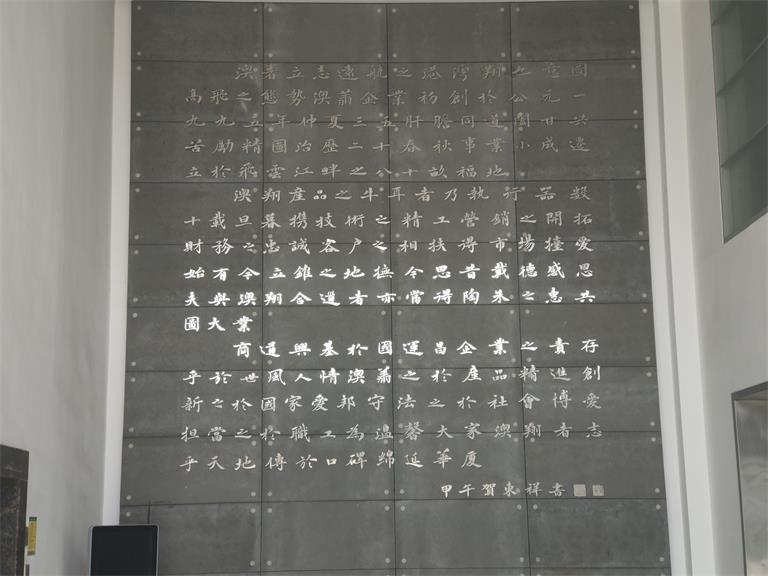 澳者立志遠航之港灣翔之意圖
高飛之態勢澳蕭企業初創於公元一
九九五年仲夏三五肝膽同道闔甘共
苦勵精圖治歷二十春秋事業小成遷
立於飛雲江畔之八十畝福地
澳翔產品之牛耳者乃執行器數
十載旦暮攜技術之精工營銷之開拓
財務之忠誠客户之相扶得市場擡愛
始有今立錐之地撫今思昔戴德感恩
夫與澳翔合道者亦當得陶朱之惠共
圖大業
商道興基於國運昌企業之責存
乎於世風人情澳蕭之於產品精進創
新之於國家愛邦守法之於社會博愛
担當之於職工為溫馨大家澳翔者志
乎天地傳於口碑绵延華厦
甲午賀東祥書